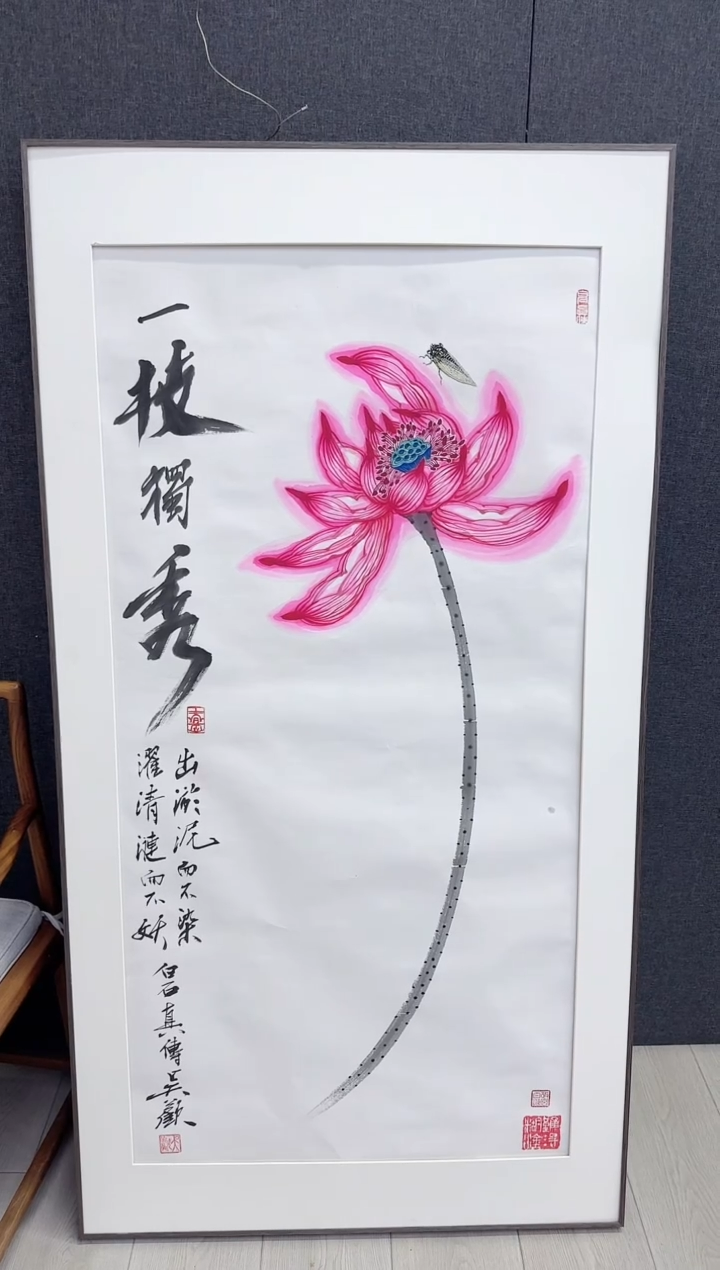 一枝獨秀
出淤泥而不染
濯清漣而不妖
白石真傳吴歡